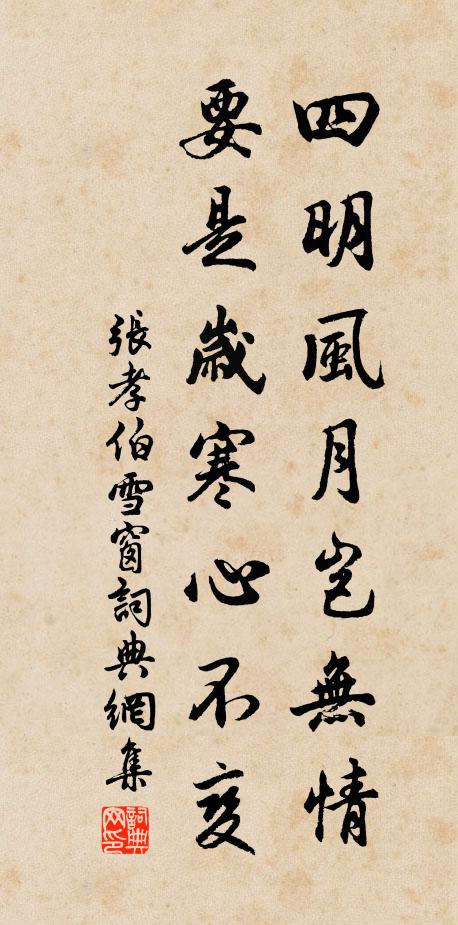 四明風月豈無情
要是歲寒心不变
張孝伯雪窗詞典網集
詞典网印